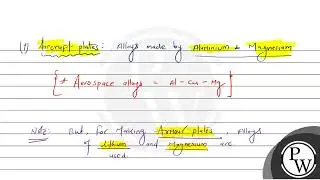 (1) Aircraft plates: Alloys made by Aluminium & Magnesium
{ * Aerospace alloys = Al-Cu-Mg }
Note: But, for Making Armour plates, Alloys
of lithium and Magnesium are
used.
PW